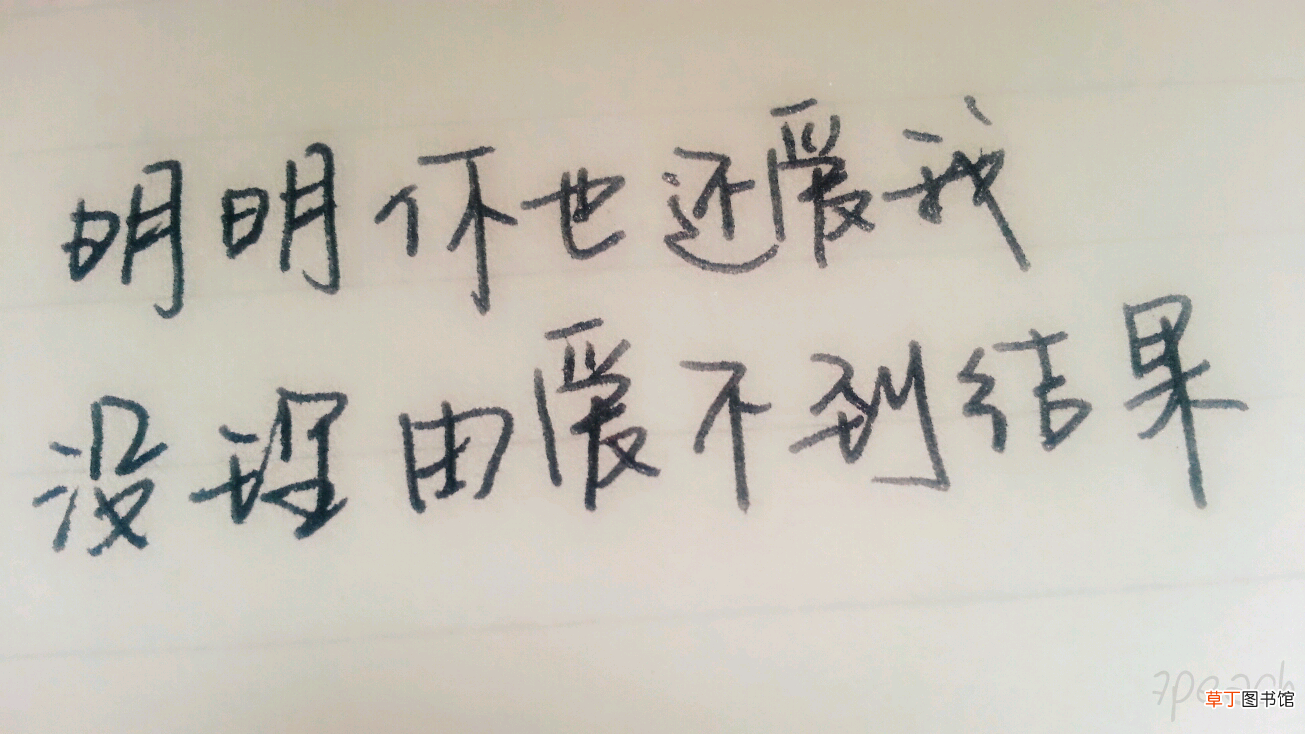 明明你也还爱我
没理由爱不到结果
草丁图书馆